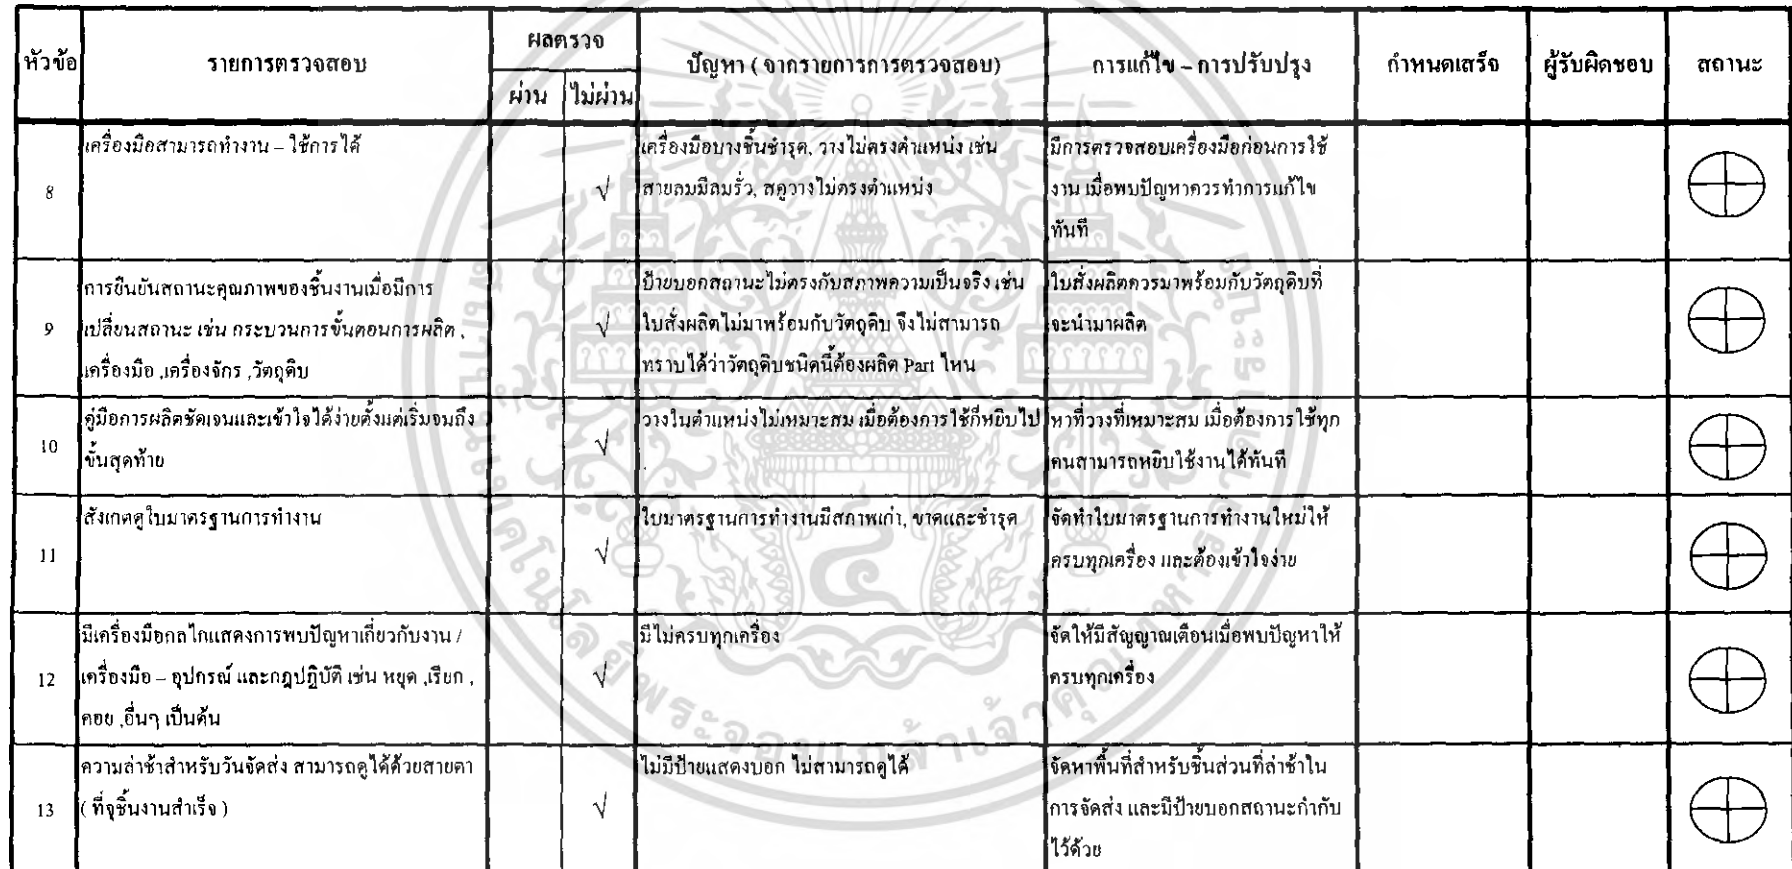 หัวข้อ
รายการตรวจสอบ
ผลตรวจ
ผ่าน
ไม่ผ่าน
ปัญหา ( จากรายการการตรวจสอบ)
การแก้ไข – การปรับปรุง
กำหนดเสร็จ
ผู้รับผิดชอบ
สถานะ
8
เครื่องมือสามารถทำงาน – ใช้การได้
√
เครื่องมือบางชิ้นชำรุด, วางไม่ตรงตำแหน่ง เช่น
สายลมมีลมรั่ว, สกูวางไม่ตรงตำแหน่ง
มีการตรวจสอบเครื่องมือก่อนการใช้
งาน เมื่อพบปัญหาควรทำการแก้ไข
ทันที
9
การยืนยันสถานะคุณภาพของชิ้นงานเมื่อมีการ
เปลี่ยนสถานะ เช่น กระบวนการขั้นตอนการผลิต ,
เครื่องมือ ,เครื่องจักร ,วัตถุดิบ
√
ป้ายบอกสถานะไม่ตรงกับสภาพความเป็นจริง เช่น
ใบสั่งผลิตไม่มาพร้อมกับวัตถุดิบ จึงไม่สามารถ
ทราบได้ว่าวัตถุดิบชนิดนี้ต้องผลิต Part ไหน
ใบสั่งผลิตควรมาพร้อมกับวัตถุดิบที่
จะนำมาผลิต
10
คู่มือการผลิตชัดเจนและเข้าใจได้ง่ายตั้งแต่เริ่มจนถึง
ขั้นสุดท้าย
√
วางในตำแหน่งไม่เหมาะสม เมื่อต้องการใช้ก็หยิบไป
หาที่วางที่เหมาะสม เมื่อต้องการใช้ทุก
คนสามารถหยิบใช้งานได้ทันที
11
สังเกตดูใบมาตรฐานการทำงาน
√
ใบมาตรฐานการทำงานมีสภาพเก่า, ขาดและชำรุด
จัดทำใบมาตรฐานการทำงานใหม่ให้
ครบทุกเครื่อง และต้องเข้าใจง่าย
12
มีเครื่องมือกลไกแสดงการพบปัญหาเกี่ยวกับงาน /
เครื่องมือ – อุปกรณ์ และกฎปฏิบัติ เช่น หยุด ,เรียก ,
คอย ,อื่นๆ เป็นต้น
√
มีไม่ครบทุกเครื่อง
จัดให้มีสัญญาณเตือนเมื่อพบปัญหาให้
ครบทุกเครื่อง
13
ความล่าช้าสำหรับวันจัดส่ง สามารถดูได้ด้วยสายตา
( ที่จุชิ้นงานสำเร็จ )
√
ไม่มีป้ายแสดงบอก ไม่สามารถดูได้
จัดหาพื้นที่สำหรับชิ้นส่วนที่ล่าช้าใน
การจัดส่ง และมีป้ายบอกสถานะกำกับ
ไว้ด้วย